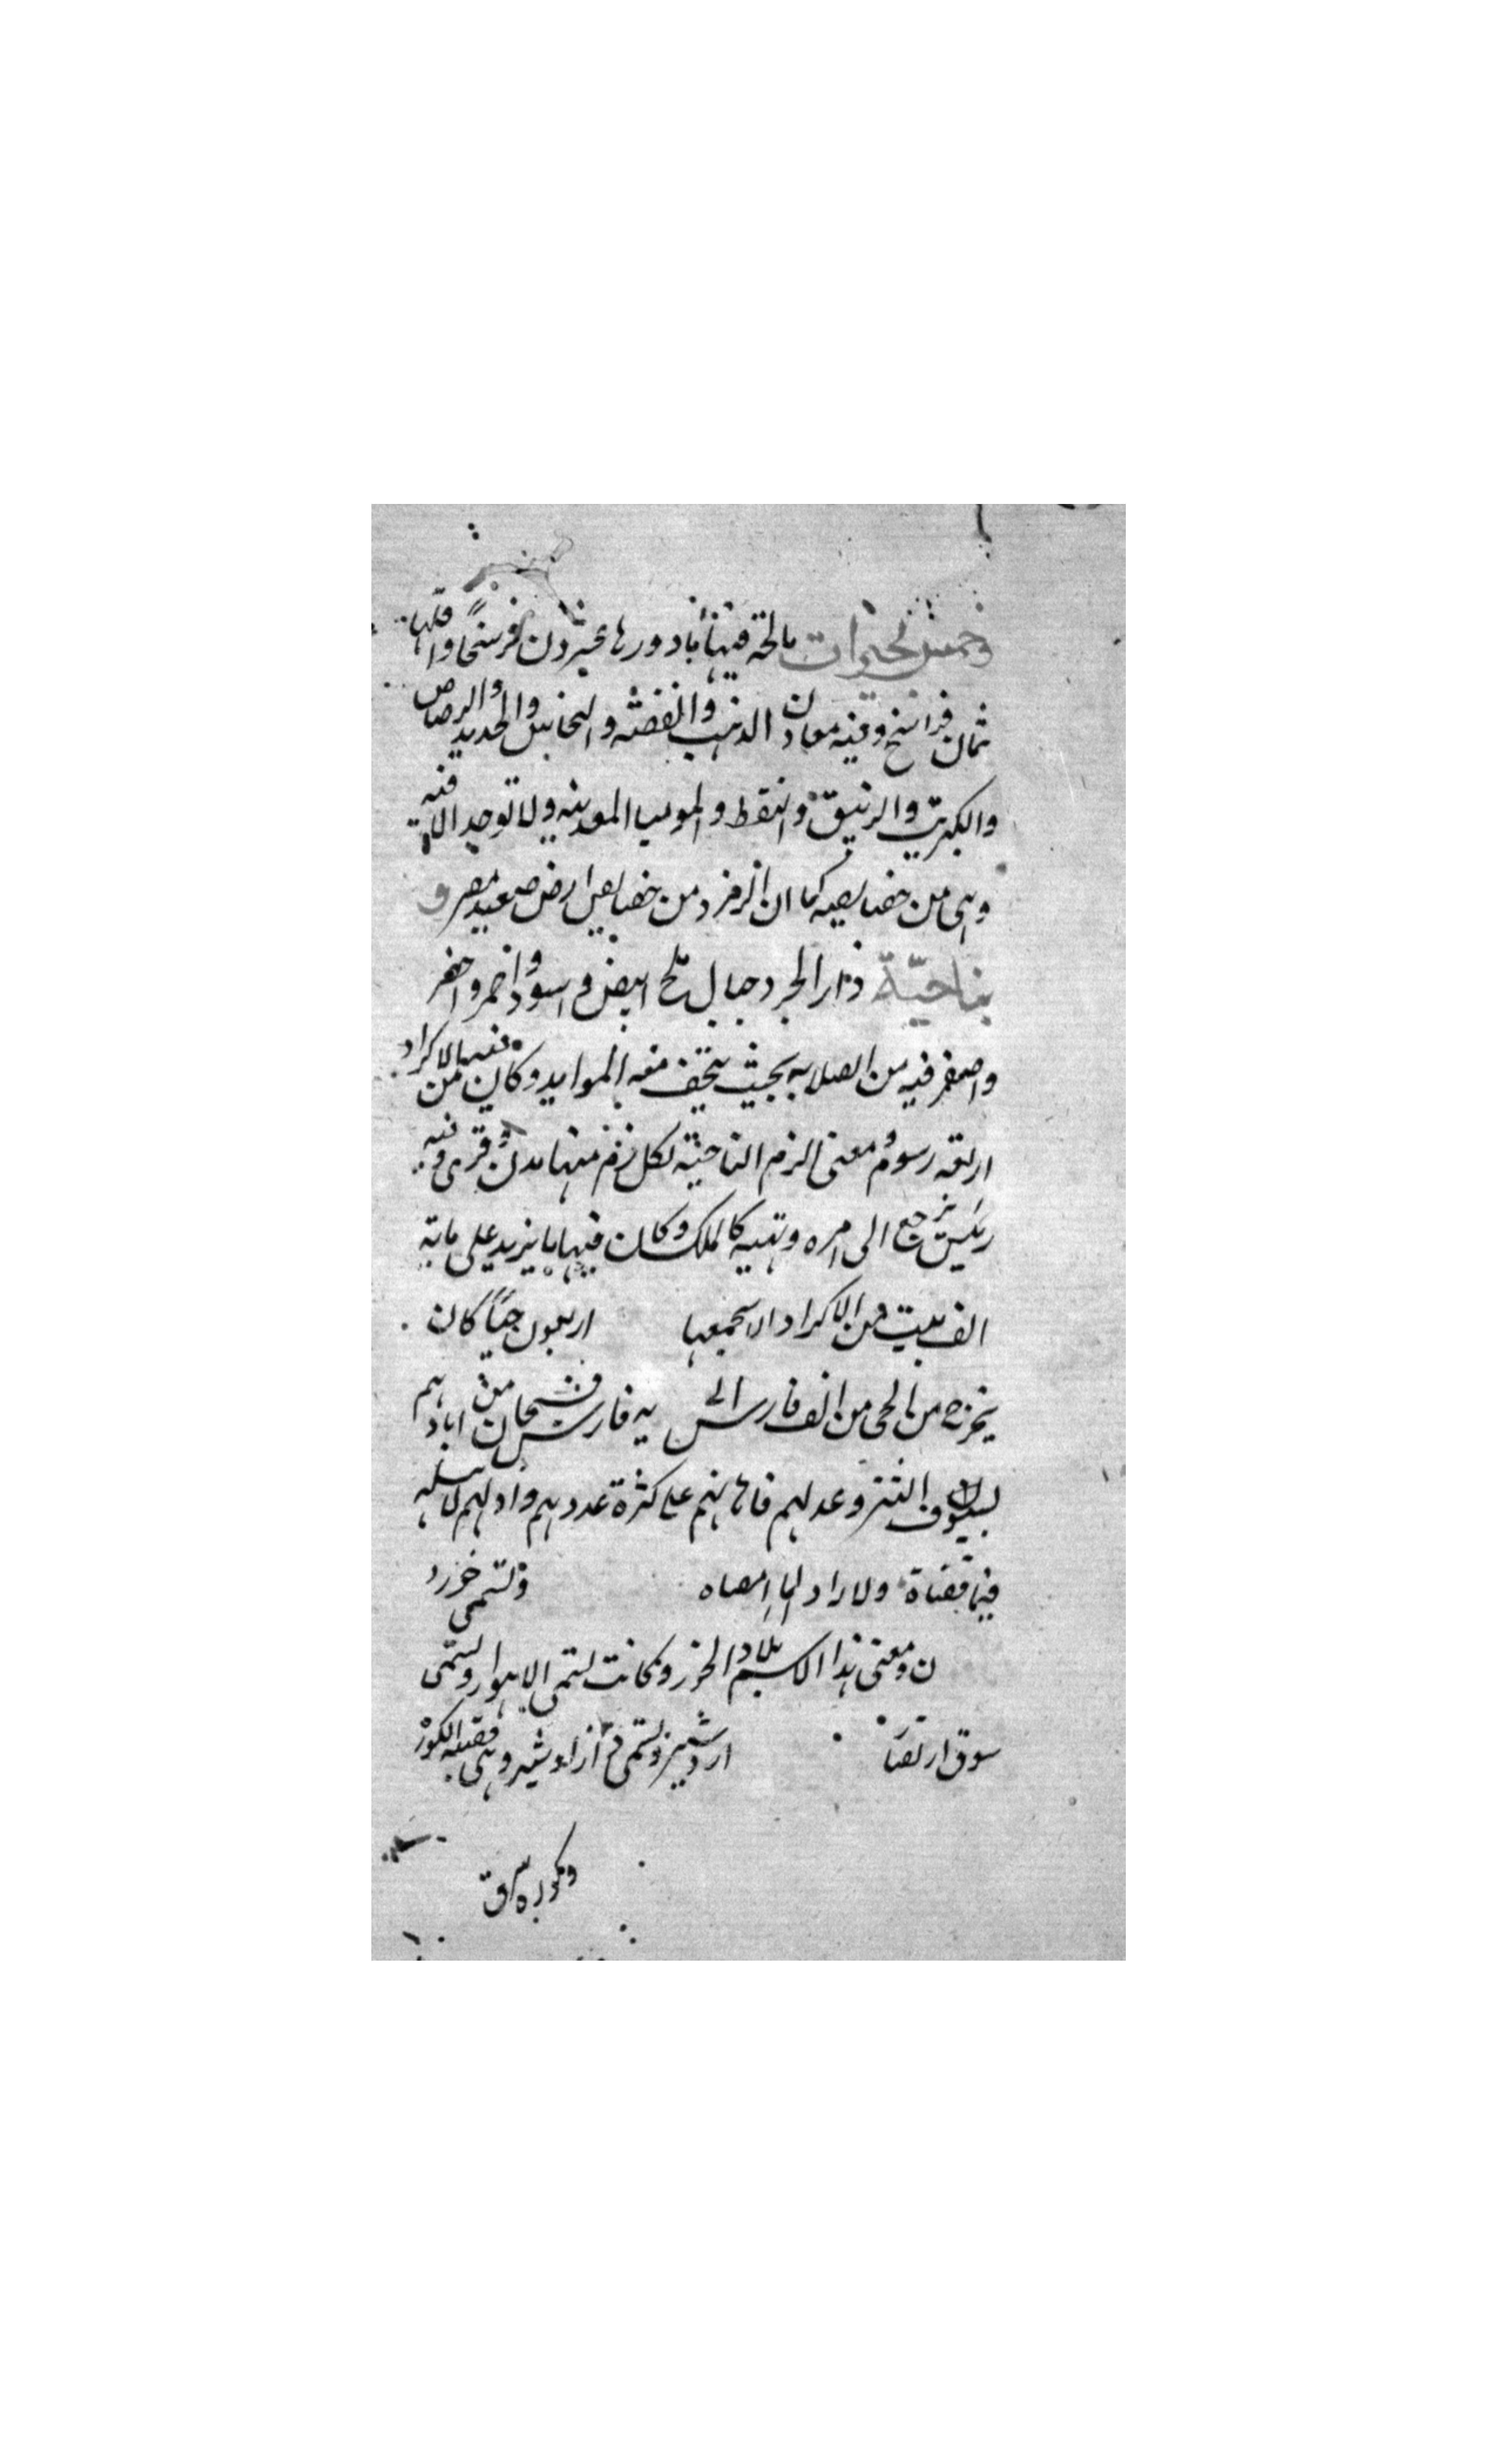 وخمس بحيرات مالحة فيها ما دورها عشرون فرسخا واقلها
ثمان فراسخ وفيه معادن الذهب والفضة والنحاس والحديد والرصاص
والكبريت والزئبق والنفط والموميا المعدنيه ولا توجد الا فيه
وهي من خصايصه كما ان الزمرد من خصايص ارض صعيد مصر و
بناحيّة دار الجرد جبال ملح ابيض واسود واحمر واخضر
واصفر فيه من الصلابه بحيث ينحت منه الموايد وكان من فيها الاكراد
اربعه رموم ومعنى الزم الناحية لكل زم منها مدن وقرى وفيه
رئيس يرجع الى امره ونهيه كالملك وكان فيها ما يزيد على ماية
الف بيت من الاكراد الا جميعها اربعون حيّا كان
يخرج من الحي من الف فارس الى يه فارس فسبحان من ابادهم
بسيوف التتر وعدلهم فانهم على كثرة عددهم
فيما قضاة ولا راد لما امضاه وتسمى خوزد
ن ومعنى هذا الاسم بلاد الخوز وكانت تسمى الاهواز وتسمى
سوق اردشير وتسمى وهي قصبه الكور
وكوره سرق